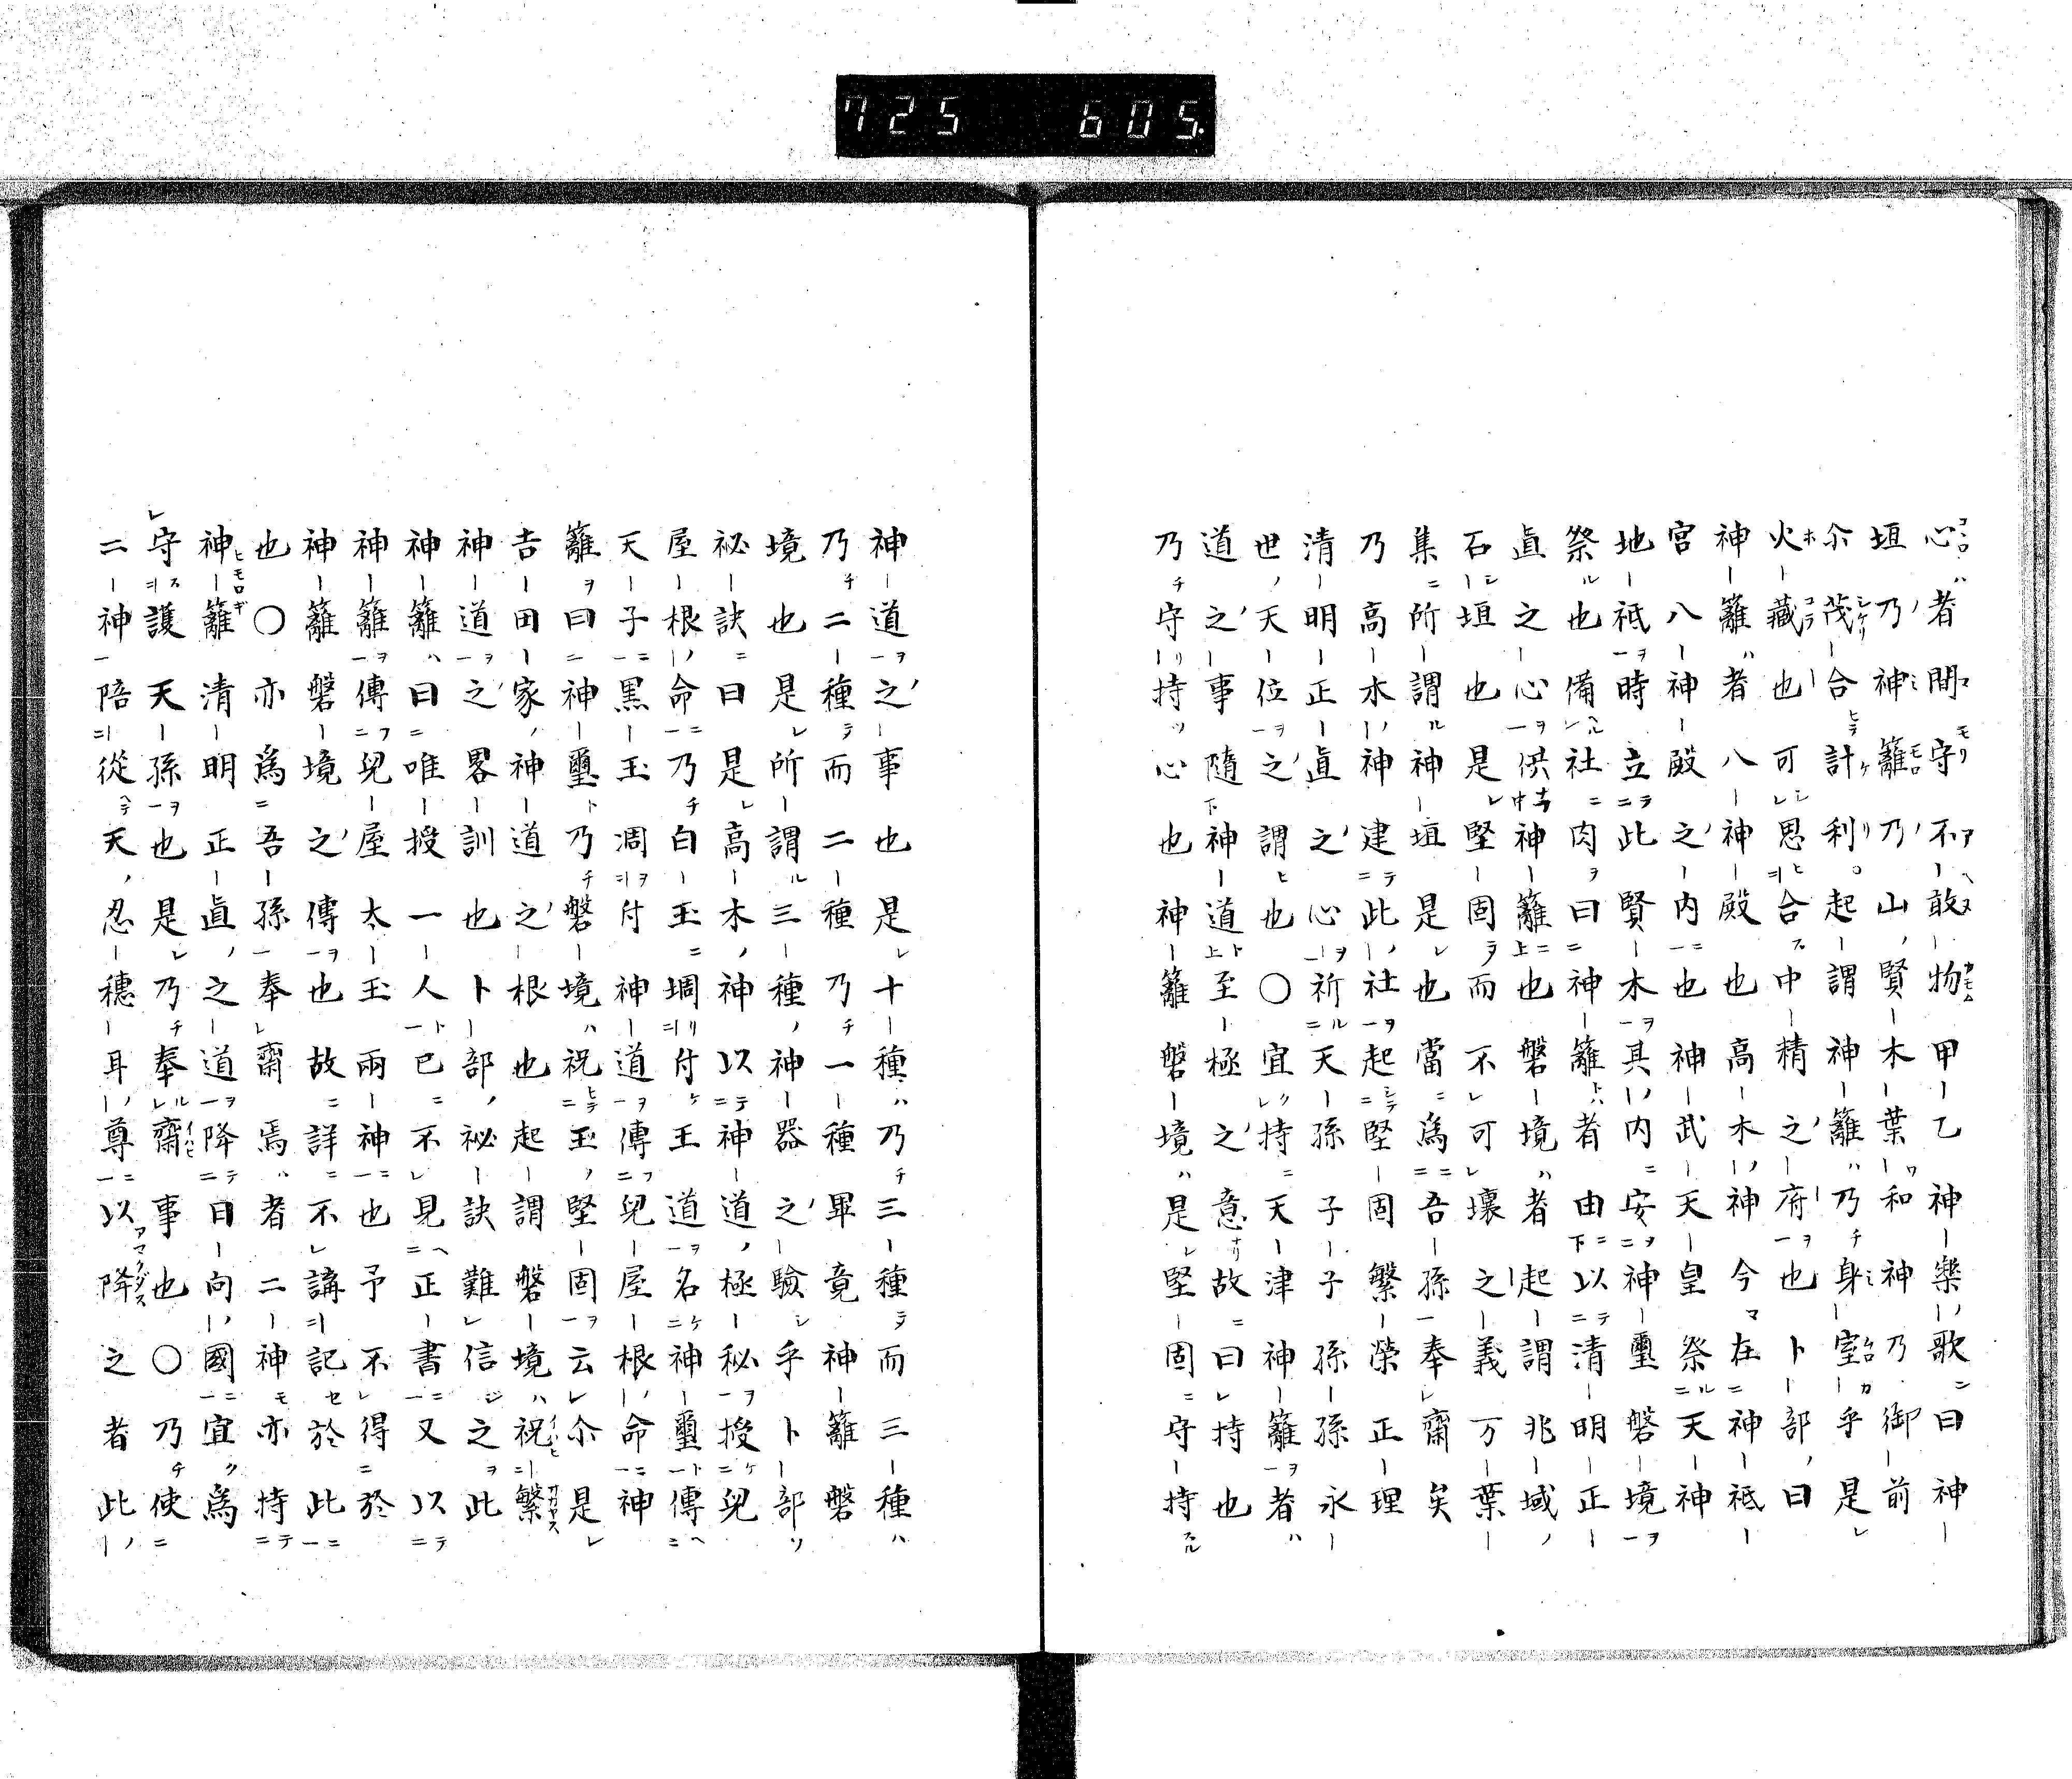 725 605.
心者間守不敢物甲乙神樂歌曰神
垣乃神籬乃山賢木葉和神乃御前
尒茂合計利。起謂神籬乃身室乎是
火藏也可思合中精之府也卜部曰
神籬者八神殿也高木神今在神祇
宮八神殿之内也神武天皇祭天神
地祇時立此賢木其内安神璽磐境
祭也備社肉曰神籬者由以清明正
直之心供神籬也磐境者起謂兆域
石垣也是堅固而不可壞之義万葉
集所謂神垣是也當爲吾孫奉齋矣
乃高木神建此社起堅固繁榮正理
清明正直之心祈天孫子子孫孫永
世天位之謂也〇宜持天津神籬者
道之事隨神道至極之意故曰持也
乃守持心也神籬磐境是堅固守持
神道之事也是十種乃三種而三種
乃二種而二種乃一種畢竟神籬磐
境也是所謂三種神器之驗乎卜部
祕訣曰是高木神以神道極秘授兒
屋根命乃白玉堈付王道名神璽傳
天子黒玉凋付神道傳兒屋根命神
籬曰神璽乃磐境祝玉堅固云尒是
吉田家神道之根也起謂磐境祝繁
神道之畧訓也卜部祕訣難信之此
神籬曰唯授一人已不見正書又以
神籬傳兒屋太玉兩神也予不得於
神籬磐境之傳也故詳不講記於此
也〇亦爲吾孫奉齋焉者二神亦持
神籬清明正直之道降日向國宜爲
守護天孫也是乃奉齋事也〇乃使
二神陪從天忍穗耳尊以降之者此